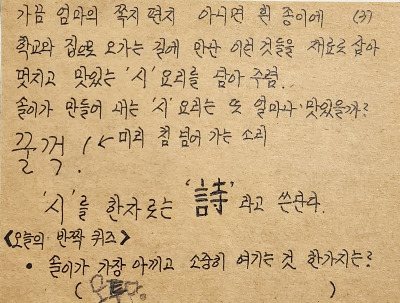 가끔 엄마의 쪽지 편지 아니면 흰 종이에 (3)
학교와 집으로 오가는 길에 만난 이런 것들을 재료로 잡아
멋지고 맛있는 '시' 요리를 담아 주렴..
솔이가 만들어 내는 '시' 요리는 또 얼마나 맛있을까?
꿀꺽! ← 미리 침 넘어 가는 소리
'시'를 한자로는 '詩'라고 쓴단다.
<오늘의 반짝 퀴즈>
• 솔이가 가장 아끼고 소중히 여기는 것 한가지는?
( 모두다. )